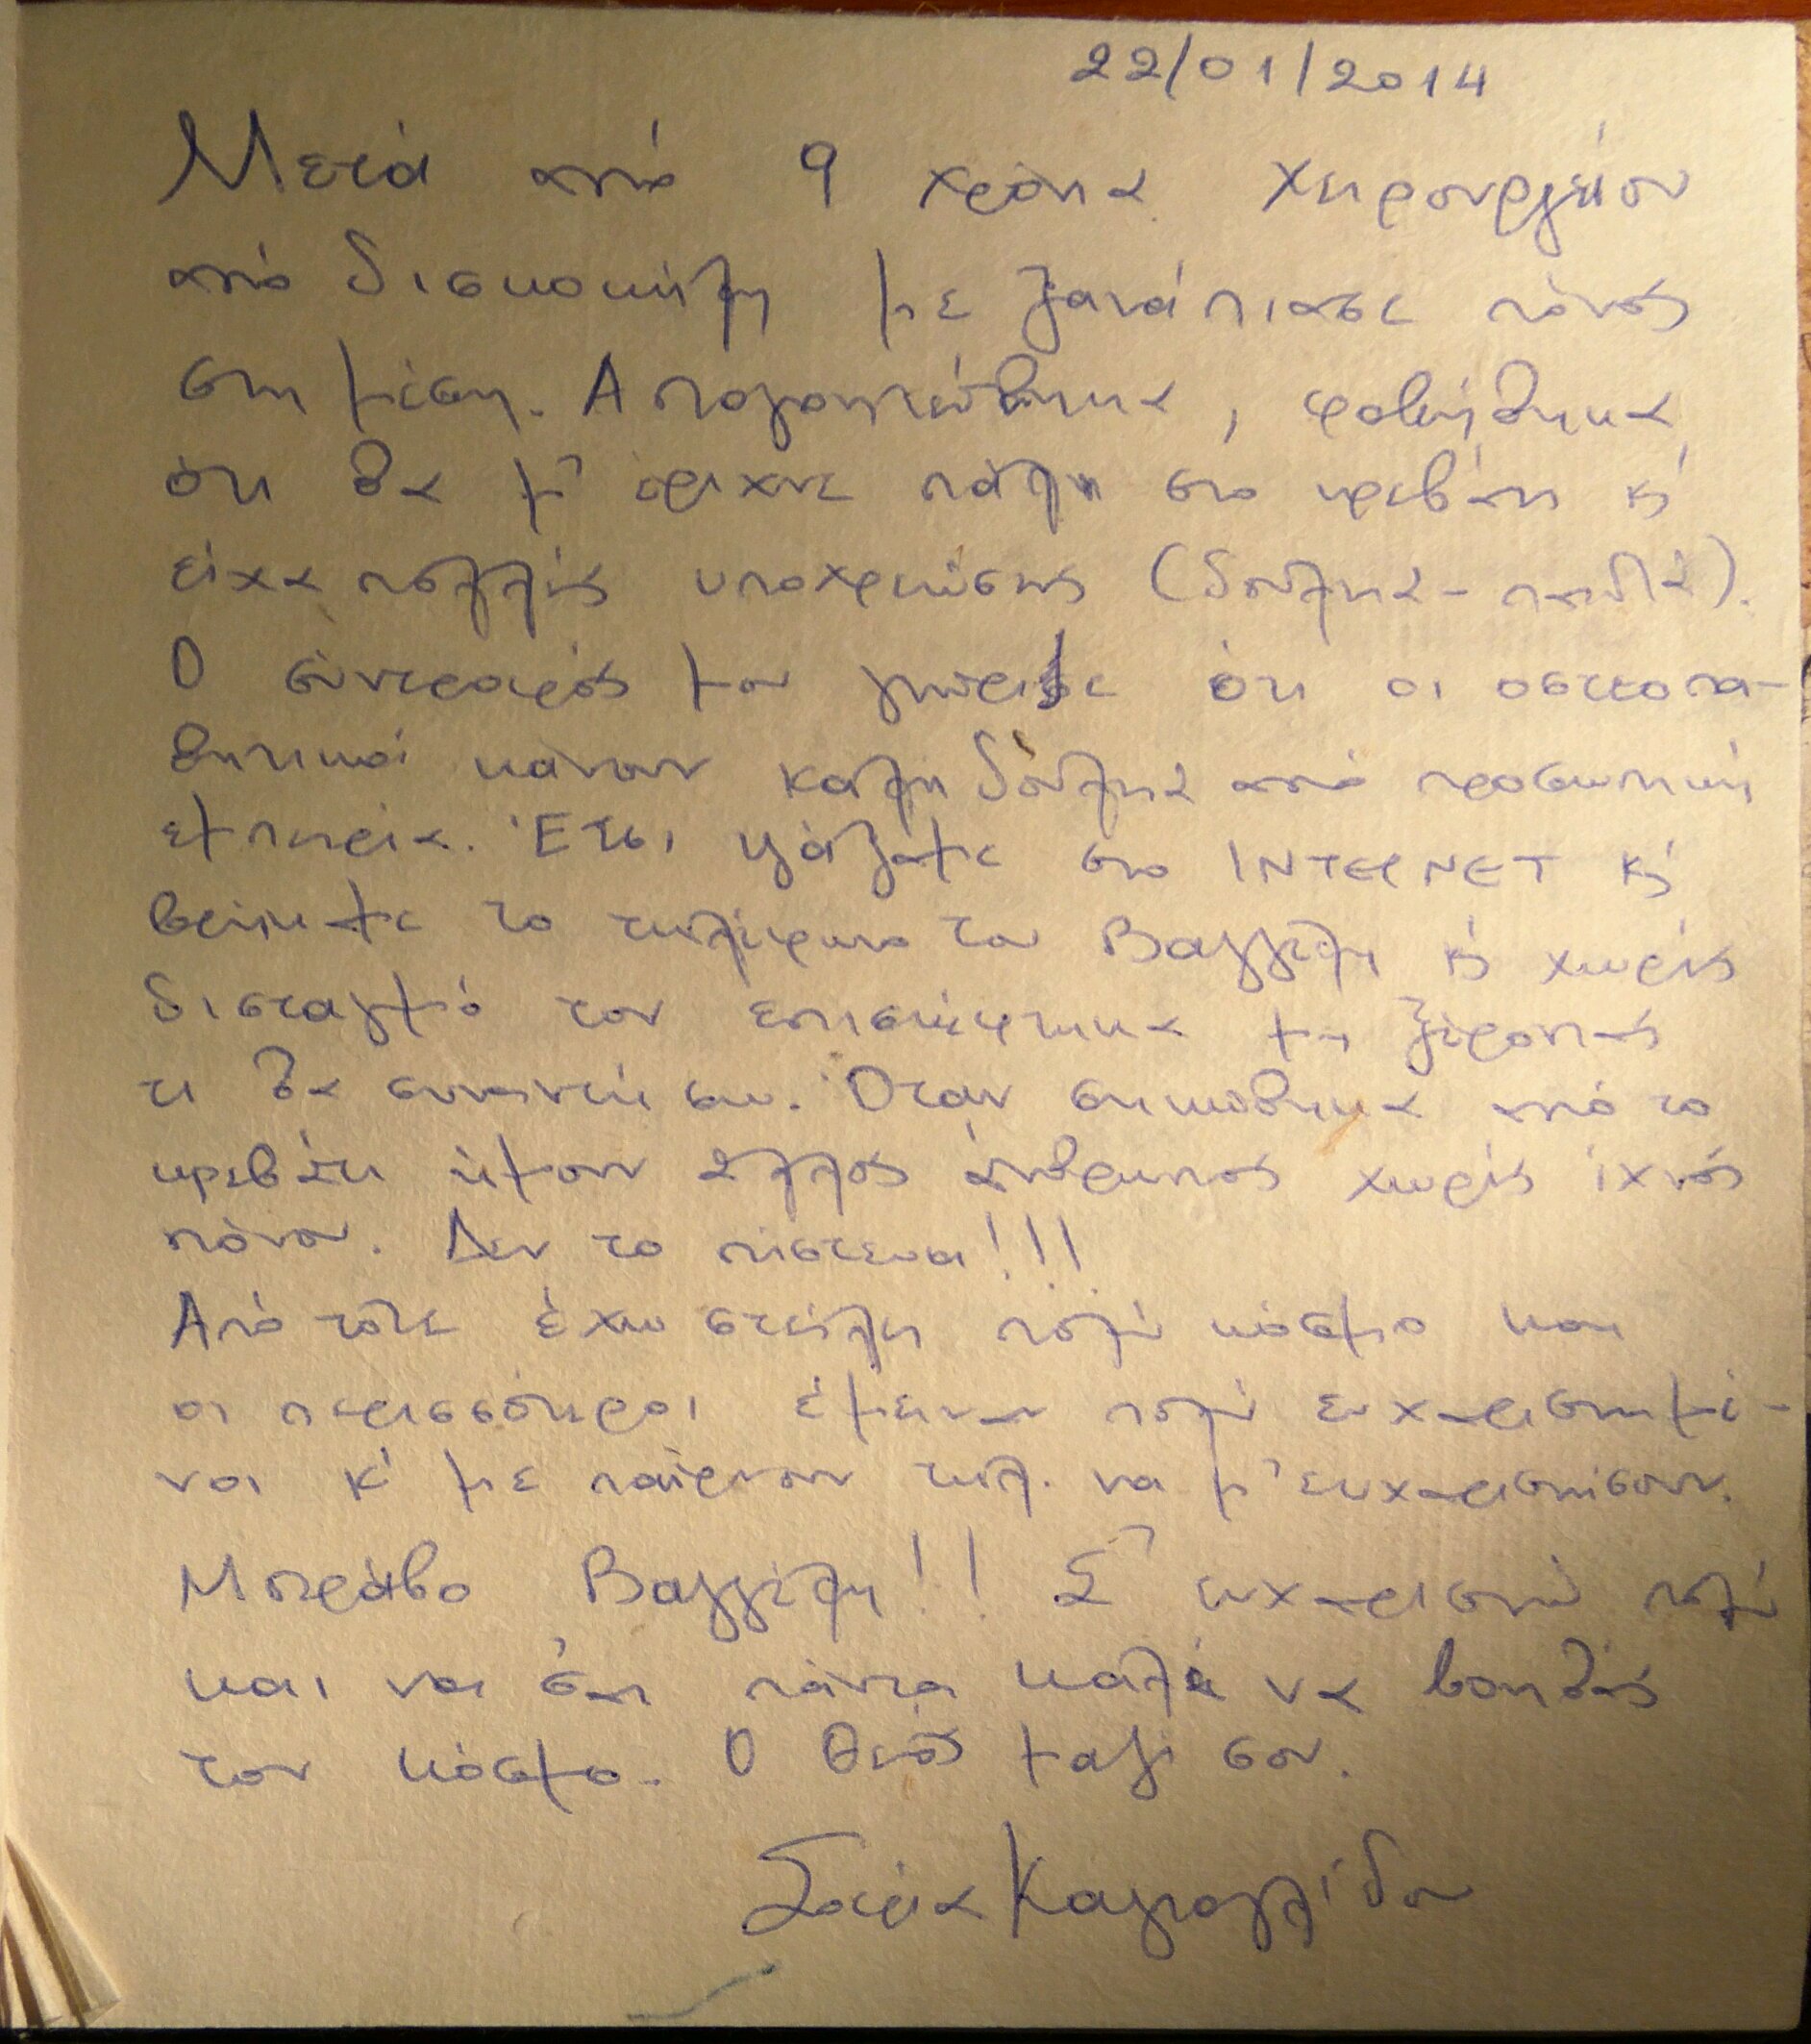 22/01/2014
Μετά από 9 χρόνια χειρουργείου
από δισκοκήλη με ξανάπιασε πόνος
στη μέση. Απογοητεύθηκα, φοβήθηκα
ότι θα μ' έριχνε πάλι στο κρεβάτι κ'
είχα πολλές υποχρεώσεις (δουλειά - παιδιά).
Ο σύντροφός μου γνώριζε ότι οι οστεοπα-
θητικοί κάνουν καλή δουλειά από προσωπική
εμπειρία. Έτσι ψάξαμε στο INTERNET κ'
βρήκαμε το τηλέφωνο του Βαγγέλη κ' χωρίς
δισταγμό τον επισκέφτηκα μη ξέροντας
τι θα συναντήσω. Όταν σηκώθηκα από το
κρεβάτι ήμουν άλλος άνθρωπος χωρίς ίχνος
πόνου. Δεν το πίστευα!!!
Από τότε έχω στείλει πολύ κόσμο και
οι περισσότεροι έμειναν πολύ ευχαριστημέ-
νοι κ' με παίρνουν τηλ. να μ' ευχαριστήσουν.
Μπράβο Βαγγέλη!! Σ' ευχαριστώ πολύ
και να 'σαι πάντα καλά να βοηθάς
τον κόσμο. Ο Θεός μαζί σου.
Σοφία